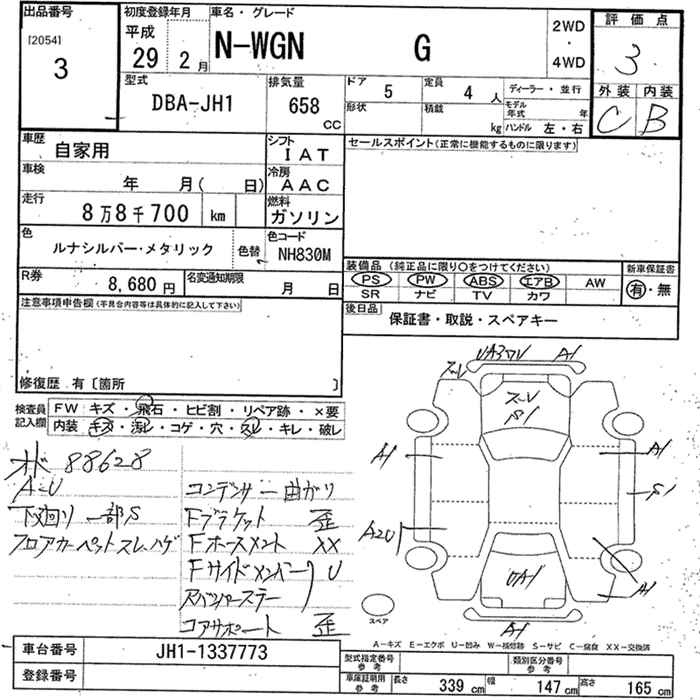 出品番号
[2054]
3
初度登録年月
平成
29 2 月
車名・グレード
N-WGN G
2WD
・
4WD
評価点
3
外装 内装
C B
型式
DBA-JH1
排気量
658
cc
ドア 5
定員 4 人
形状
積載 kg
ディーラー・並行
モデル年式 年
ハンドル 左・右
車歴
自家用
シフト
IAT
セールスポイント(正常に機能するものに限ります)
車検
年 月( 日)
冷房
AAC
走行
8万8千700 km
燃料
ガソリン
色
ルナシルバー・メタリック
色替
色コード
NH830M
R券
8,680円
名変通知期限
月 日
装備品 (純正品に限り○をつけてください)
PS PW ABS エアB AW
SR ナビ TV カワ
新車保証書
有・無
後日品
保証書・取説・スペアキー
注意事項申告欄 (不具合内容等は具体的に記入して下さい)
修復歴 有〔箇所 〕
検査員記入欄
FW キズ・飛石・ヒビ割・リペア跡・×要
内装 キズ・汚レ・コゲ・穴・スレ・キレ・破レ
オド 88628
A・U
下廻り 一部S
フロアカーペットスレ、ハゲ
コンデンサー曲がり
Fブラケット 歪
Fホースメント XX
Fサイドメンバー U
コアサポート 歪
A1
A1
A1
A2U
A1
A1
スペア
A-キズ E-エクボ U-凹み W-補修跡 S-サビ C-腐食 XX-交換済
車台番号
JH1-1337773
登録番号
型式指定番号 参考
類別区分番号 参考
車庫証明用 参考
長さ 339 cm
幅 147 cm
高さ 165 cm